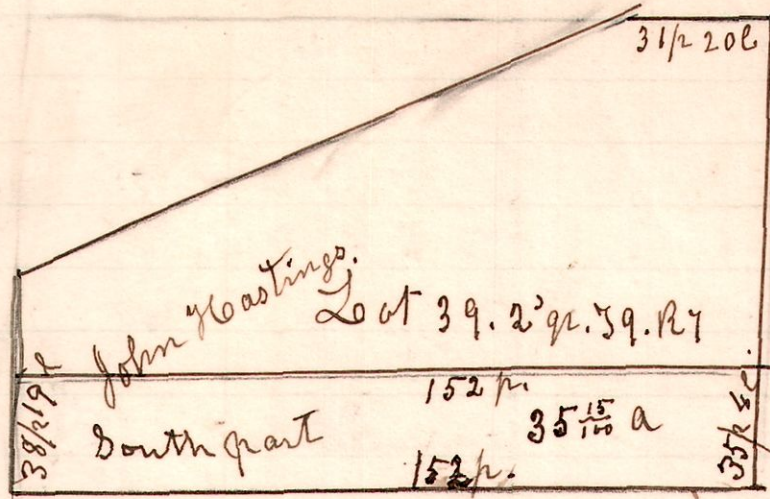 31p 20l
John Hastings.
Lot 39. 2d qr. T9. R7
152 p.
38p 19l
South part
35 15/100 a
152 p.
35p 5l.